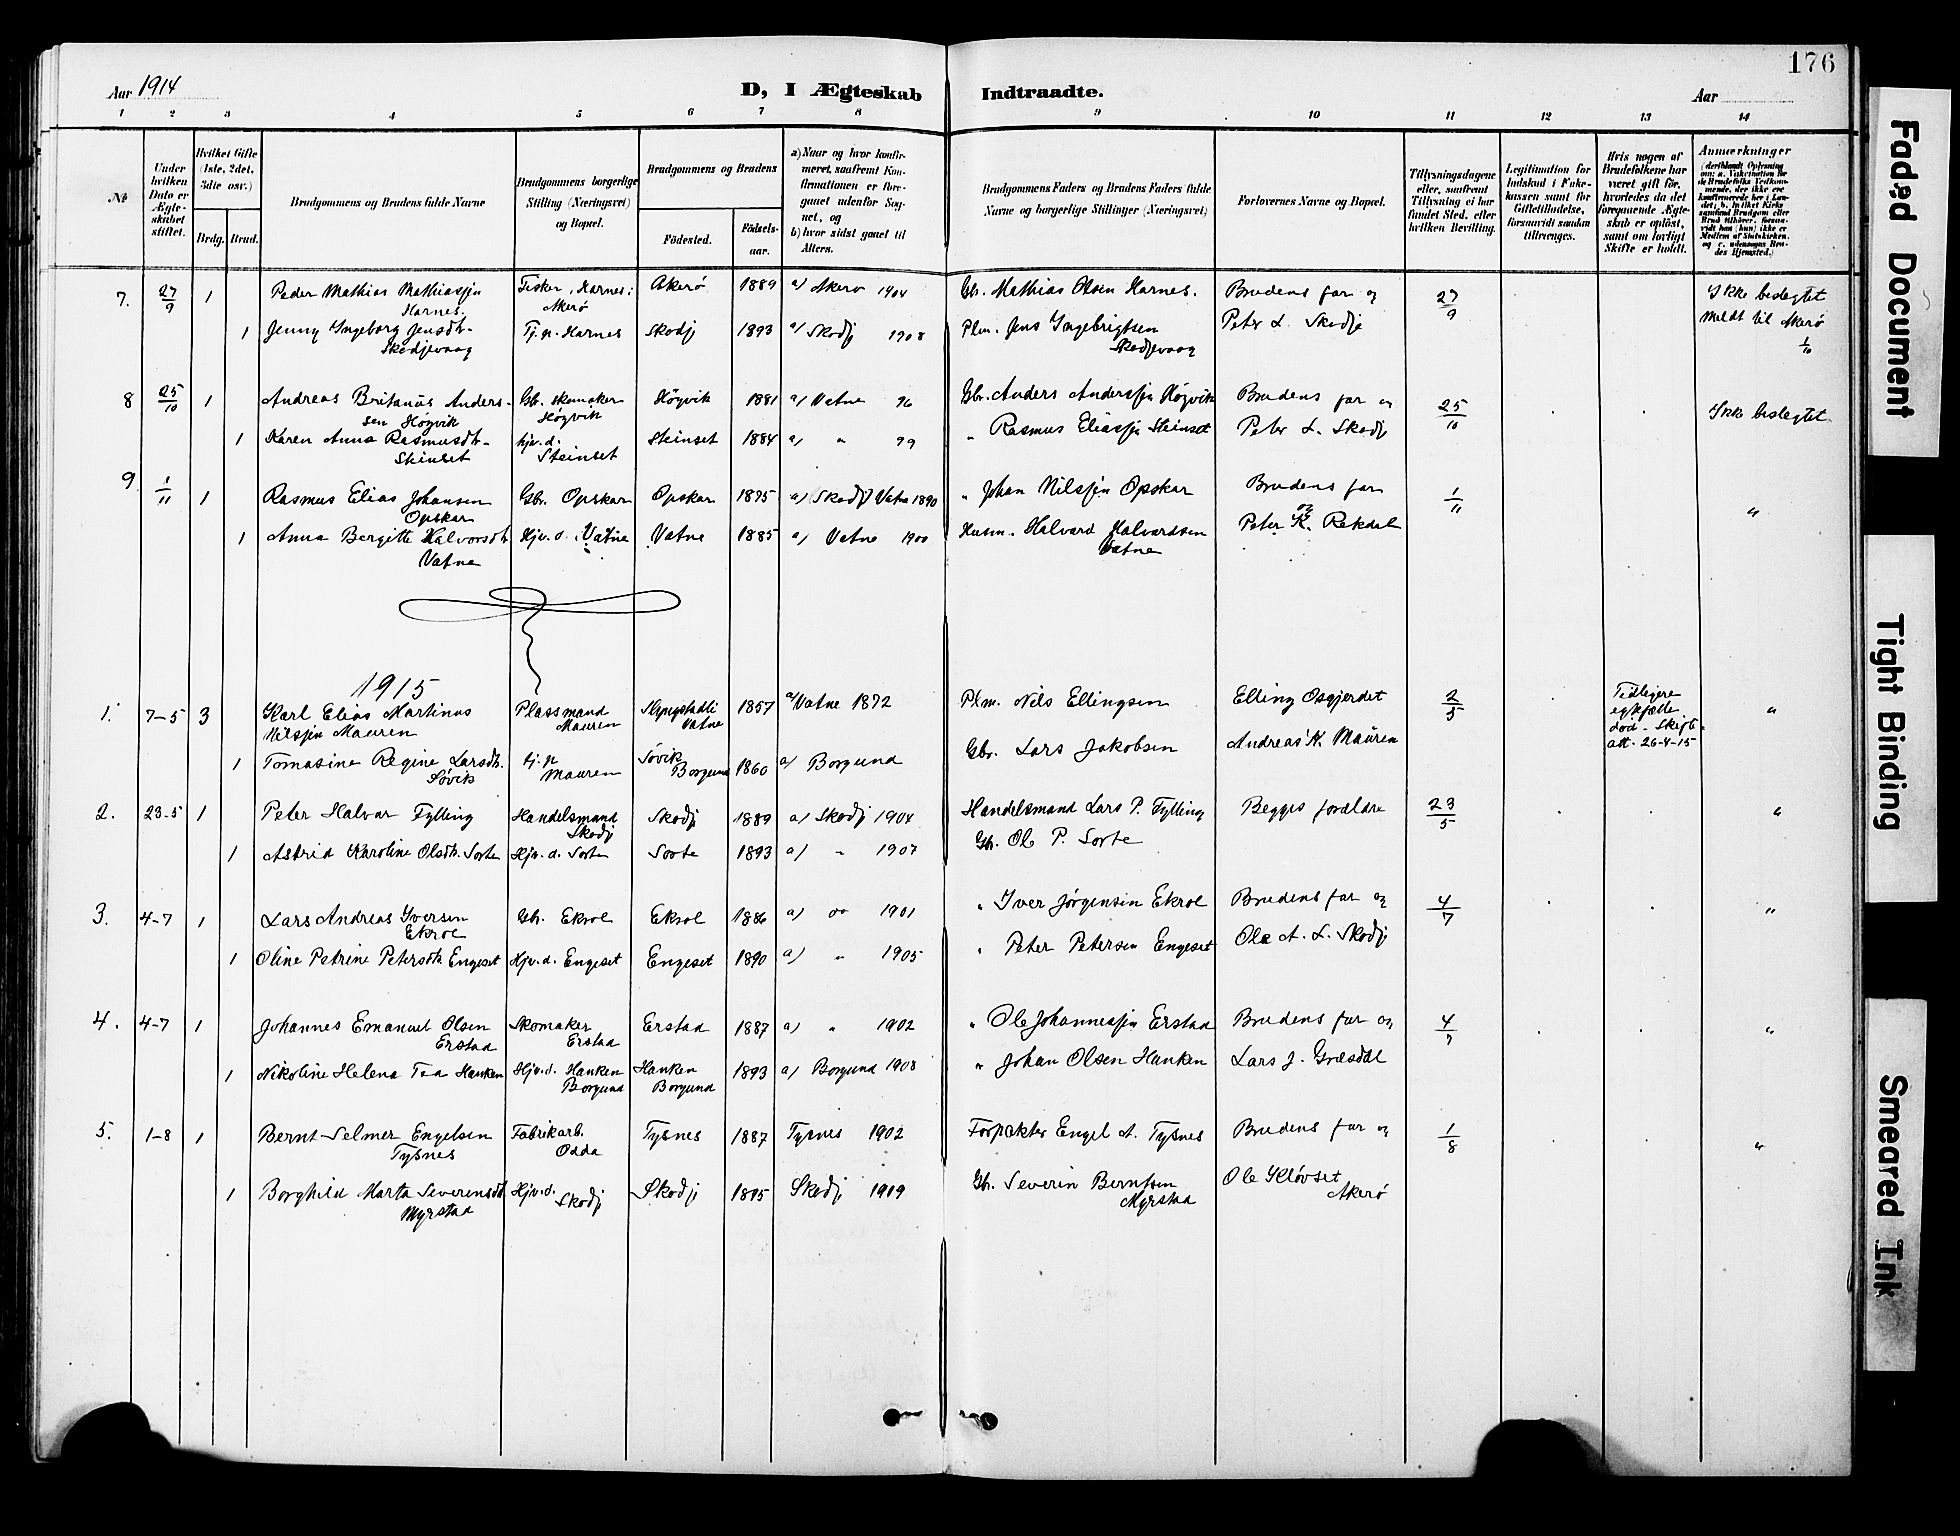 176
Aar 1914
D, I Ægteskab
Indtraadte.
Aar
1 2 3 4 5 6 7 8 9 10 11 12 13 14
№
Under hvilken Dato er Ægteskabet stiftet.
Hvilket Gifte (1ste, 2det, 3die osv.)
Brdg.
Brud.
Brudgommens og Brudens fulde Navne
Brudgommens borgerlige Stilling (Næringsvei) og Bopæl.
Brudgommens og Brudens
Födested.
Födsels-aar.
a) Naar og hvor konfirmeret, saafremt Konfirmationen er foregaaet udenfor Sognet, og
b) hvor sidst gaaet til Alters.
Brudgommens Faders og Brudens Faders fulde Navne og borgerlige Stillinger (Næringsvei)
Forlovernes Navne og Bopæl.
Tillysningsdagene eller, saafremt Tillysning ei har fundet Sted, efter hvilken Bevilling.
Legitimation for Indskud i Enkekassen samt for Giftetilladelse, forsaavidt saadan tiltrænges.
Hvis nogen af Brudefolkene har været gift før, hvorledes da det foregaaende Ægteskab er oplöst, samt om lovligt Skifte er holdt.
Anmærkninger
7. 27/9 1 Peder Mathias Mathiassen Harnes. Fisker, Harnes, Akerö Akerö 1889 a) Akerö 1904 Gb. Mathias Olsen Harnes. Brudens far og 27/9 Ikke beslegtet
meldt til Akerö 1/10
1 Jenny Ingeborg Jensdtr. Skodjevaag Tj.p. Harnes Skodj 1893 a) Skodj 1908 Plm. Jens Ingebrigtsen Skodjevaag Peter L. Skodje
8 25/10 1 Andreas Britanus Andersen Høgvik Gb. skomaker Høgvik Høgvik 1881 a) Vatne 96 Gb. Anders Anderssen Høgvik Brudens far og 25/10 Ikke beslegtet
1 Karen Anna Rasmusdtr. Steinset hjv.d. Steinset Steinset 1884 a) " 99 " Rasmus Eliassen Steinset Peter L. Skodj
9 1/11 1 Rasmus Elias Johansen Opskar Gbr. Opskar Opskar 1875 a) Skodj Vatne 1890 " Johan Nilssen Opskar Brudens far og 1/11 "
1 Anna Bergitte Halvorsdtr. Vatne Hjv.d. Vatne Vatne 1885 a) Vatne 1900 Husm. Halvard Halvardsen Vatne Peter K. Rekdal
1915
1. 7-5 3 Karl Elias Martinus Nilssen Mauren Plassmand Mauren Vatne 1857 a) Vatne 1872 Plm. Nils Ellingsen Elling Osgjerdet 2/5 Tidligere egtefelle död - Skifteatt. 26-4-15 "
1 Tomasine Regine Larsdtr. Søvik tj.p. Mauren Søvik Borgund 1860 a) Borgund Gbr. Lars Jakobsen Andreas K. Mauren
2. 23-5 1 Peter Halvar Fylling Handelsmand Skodj Skodj 1889 a) Skodj 1904 Handelsmand Lars P. Fylling Begges forældre 23/5 "
1 Astrid Karoline Olsdtr. Sorte Hjv.d. Sorte Sorte 1893 a) " 1907 Gb. Ole P. Sorte
3. 4-7 1 Lars Andreas Iversen Ekrol Gb. Ekrol Ekrol 1886 a) " 1901 " Iver Jørgensen Ekrol Brudens far og 4/7 "
1 Oline Petrine Petersdtr. Engeset Hjv.d. Engeset Engeset 1890 a) " 1905 " Peter Petersen Engeset Ole A. L. Skodj
4. 4-7 1 Johannes Emanuel Olsen Erstad Skomaker Erstad Erstad 1887 a) " 1902 " Ole Johannessen Erstad Brudens far og 4/7 "
1 Nikoline Helena Tea Hanken Hjv.d. Hanken Borgund Hanken Borgund 1893 a) Borgund 1908 " Johan Olsen Hanken Lars J. Græsdal
5. 1-8 1 Bernt Selmer Engelsen Tysnes Fabrikarb. Odda Tysnes 1887 Tysnes 1902 Forpakter Engel A. Tysnes Brudens far og 1/8 "
1 Borghild Marta Severinsdtr. Myrstad Hjv.d. Skodj Skodj 1895 Skodj 1909 Gb. Severin Berntsen Myrstad Ole Kløvset Akerö
Faded Document
Tight Binding
Smeared Ink